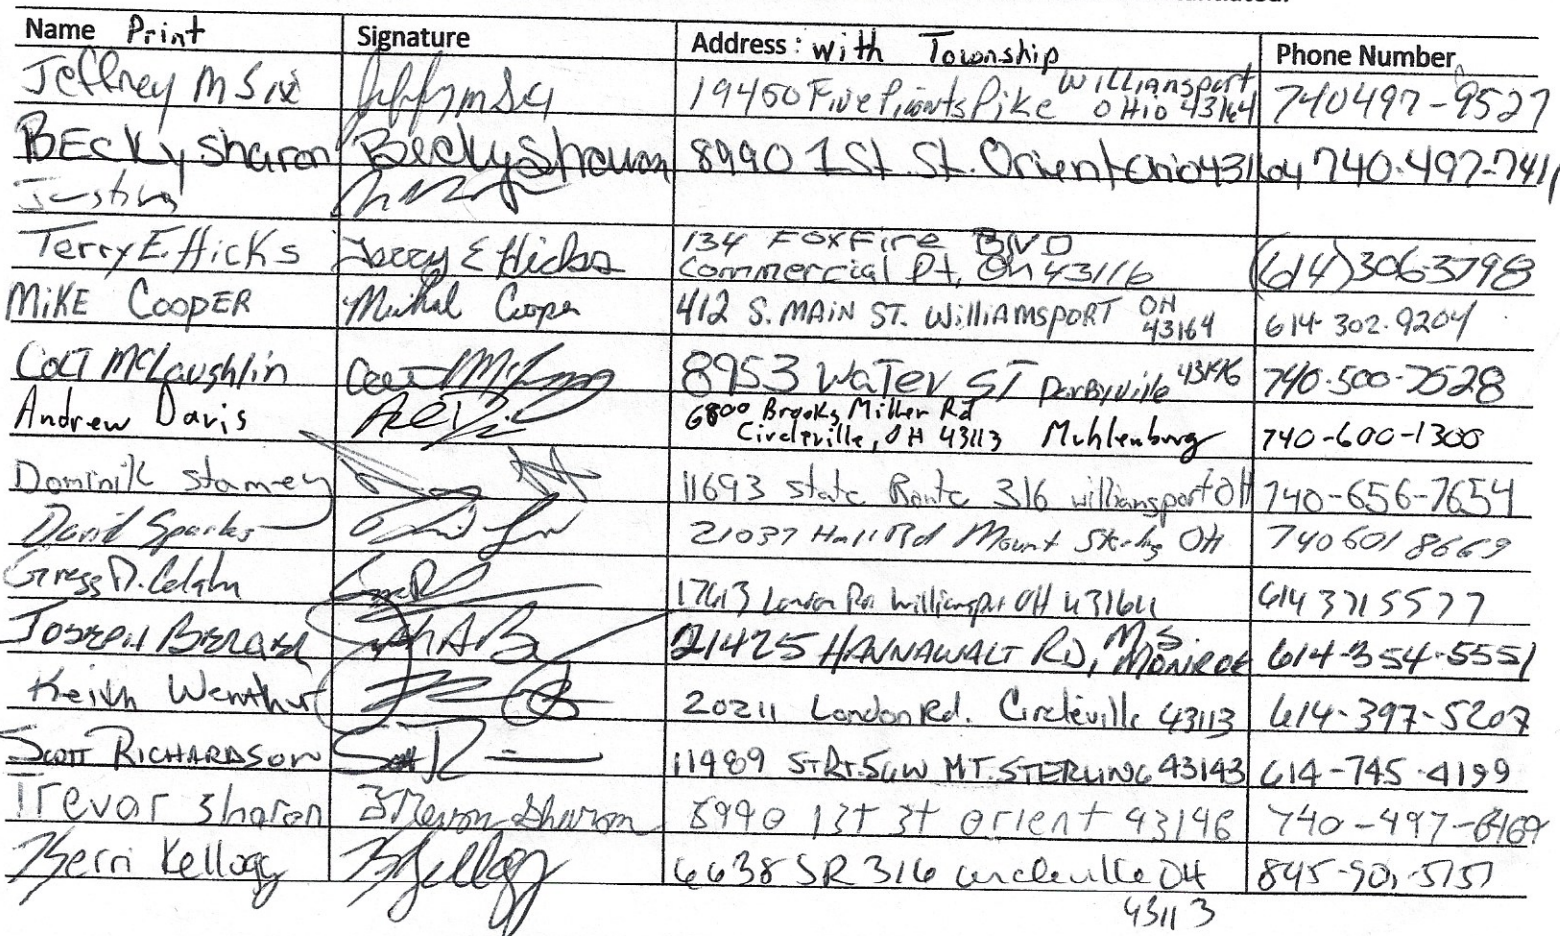 Name Print Signature Address: with Township Phone Number
Jeffrey M Six 19450 Five Points Pike Williamsport OHio 43164 740497-9527
BEcky Sharon Becky Sharon 8990 1St. St. Orient Ohio 43164 740-497-7411
Justin
Terry E. Hicks Terry E Hicks 134 FoxFire BLVD
Commercial Pt, Oh 43116 (614)3063798
MiKE COOPER Michal Cooper 412 S. MAIN ST. WilliAMSPORT ON 43164 614-302-9204
Colt McLaughlin 8953 WaTer ST Darbyville 43146 740-500-7528
Andrew Davis 6800 Brooks Miller Rd
Circleville, OH 43113 Muhlenburg 740-600-1300
Dominik Stamey 11693 state Route 316 williamsport OH 740-656-7654
David Sparks 21037 Hall Rd Mount Sterling OH 740 601 8669
Gregg D. 17613 London Rd. Williamsport OH 43164 614 3715577
JOSEPH 21425 HANNAWALT RD, M.S. MONROE 614-354-5551
Keith 20211 London Rd. Circleville 43113 614-397-5207
SCOTT RICHARDSON 11489 ST.RT.56W MT. STERLING 43143 614-745-4199
Trevar Sharon Trevor Sharon 8990 1st st orient 43146 740-497-6469
Kerri Kellogg Kellogg 6638 SR 316 circleville OH 845-901-5151
43113